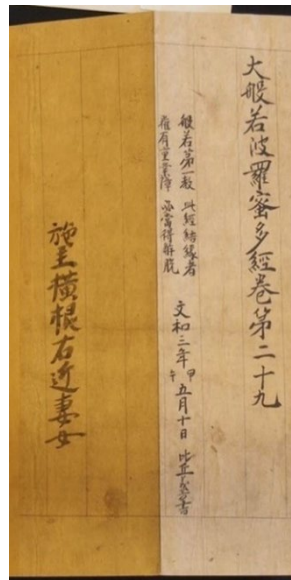 大般若波羅蜜多經卷第二十九
般若第一教 此經結縁者
雖有重業障 必當得解脱
文和三年甲午五月十日 比丘書
施主橫根右近妻女